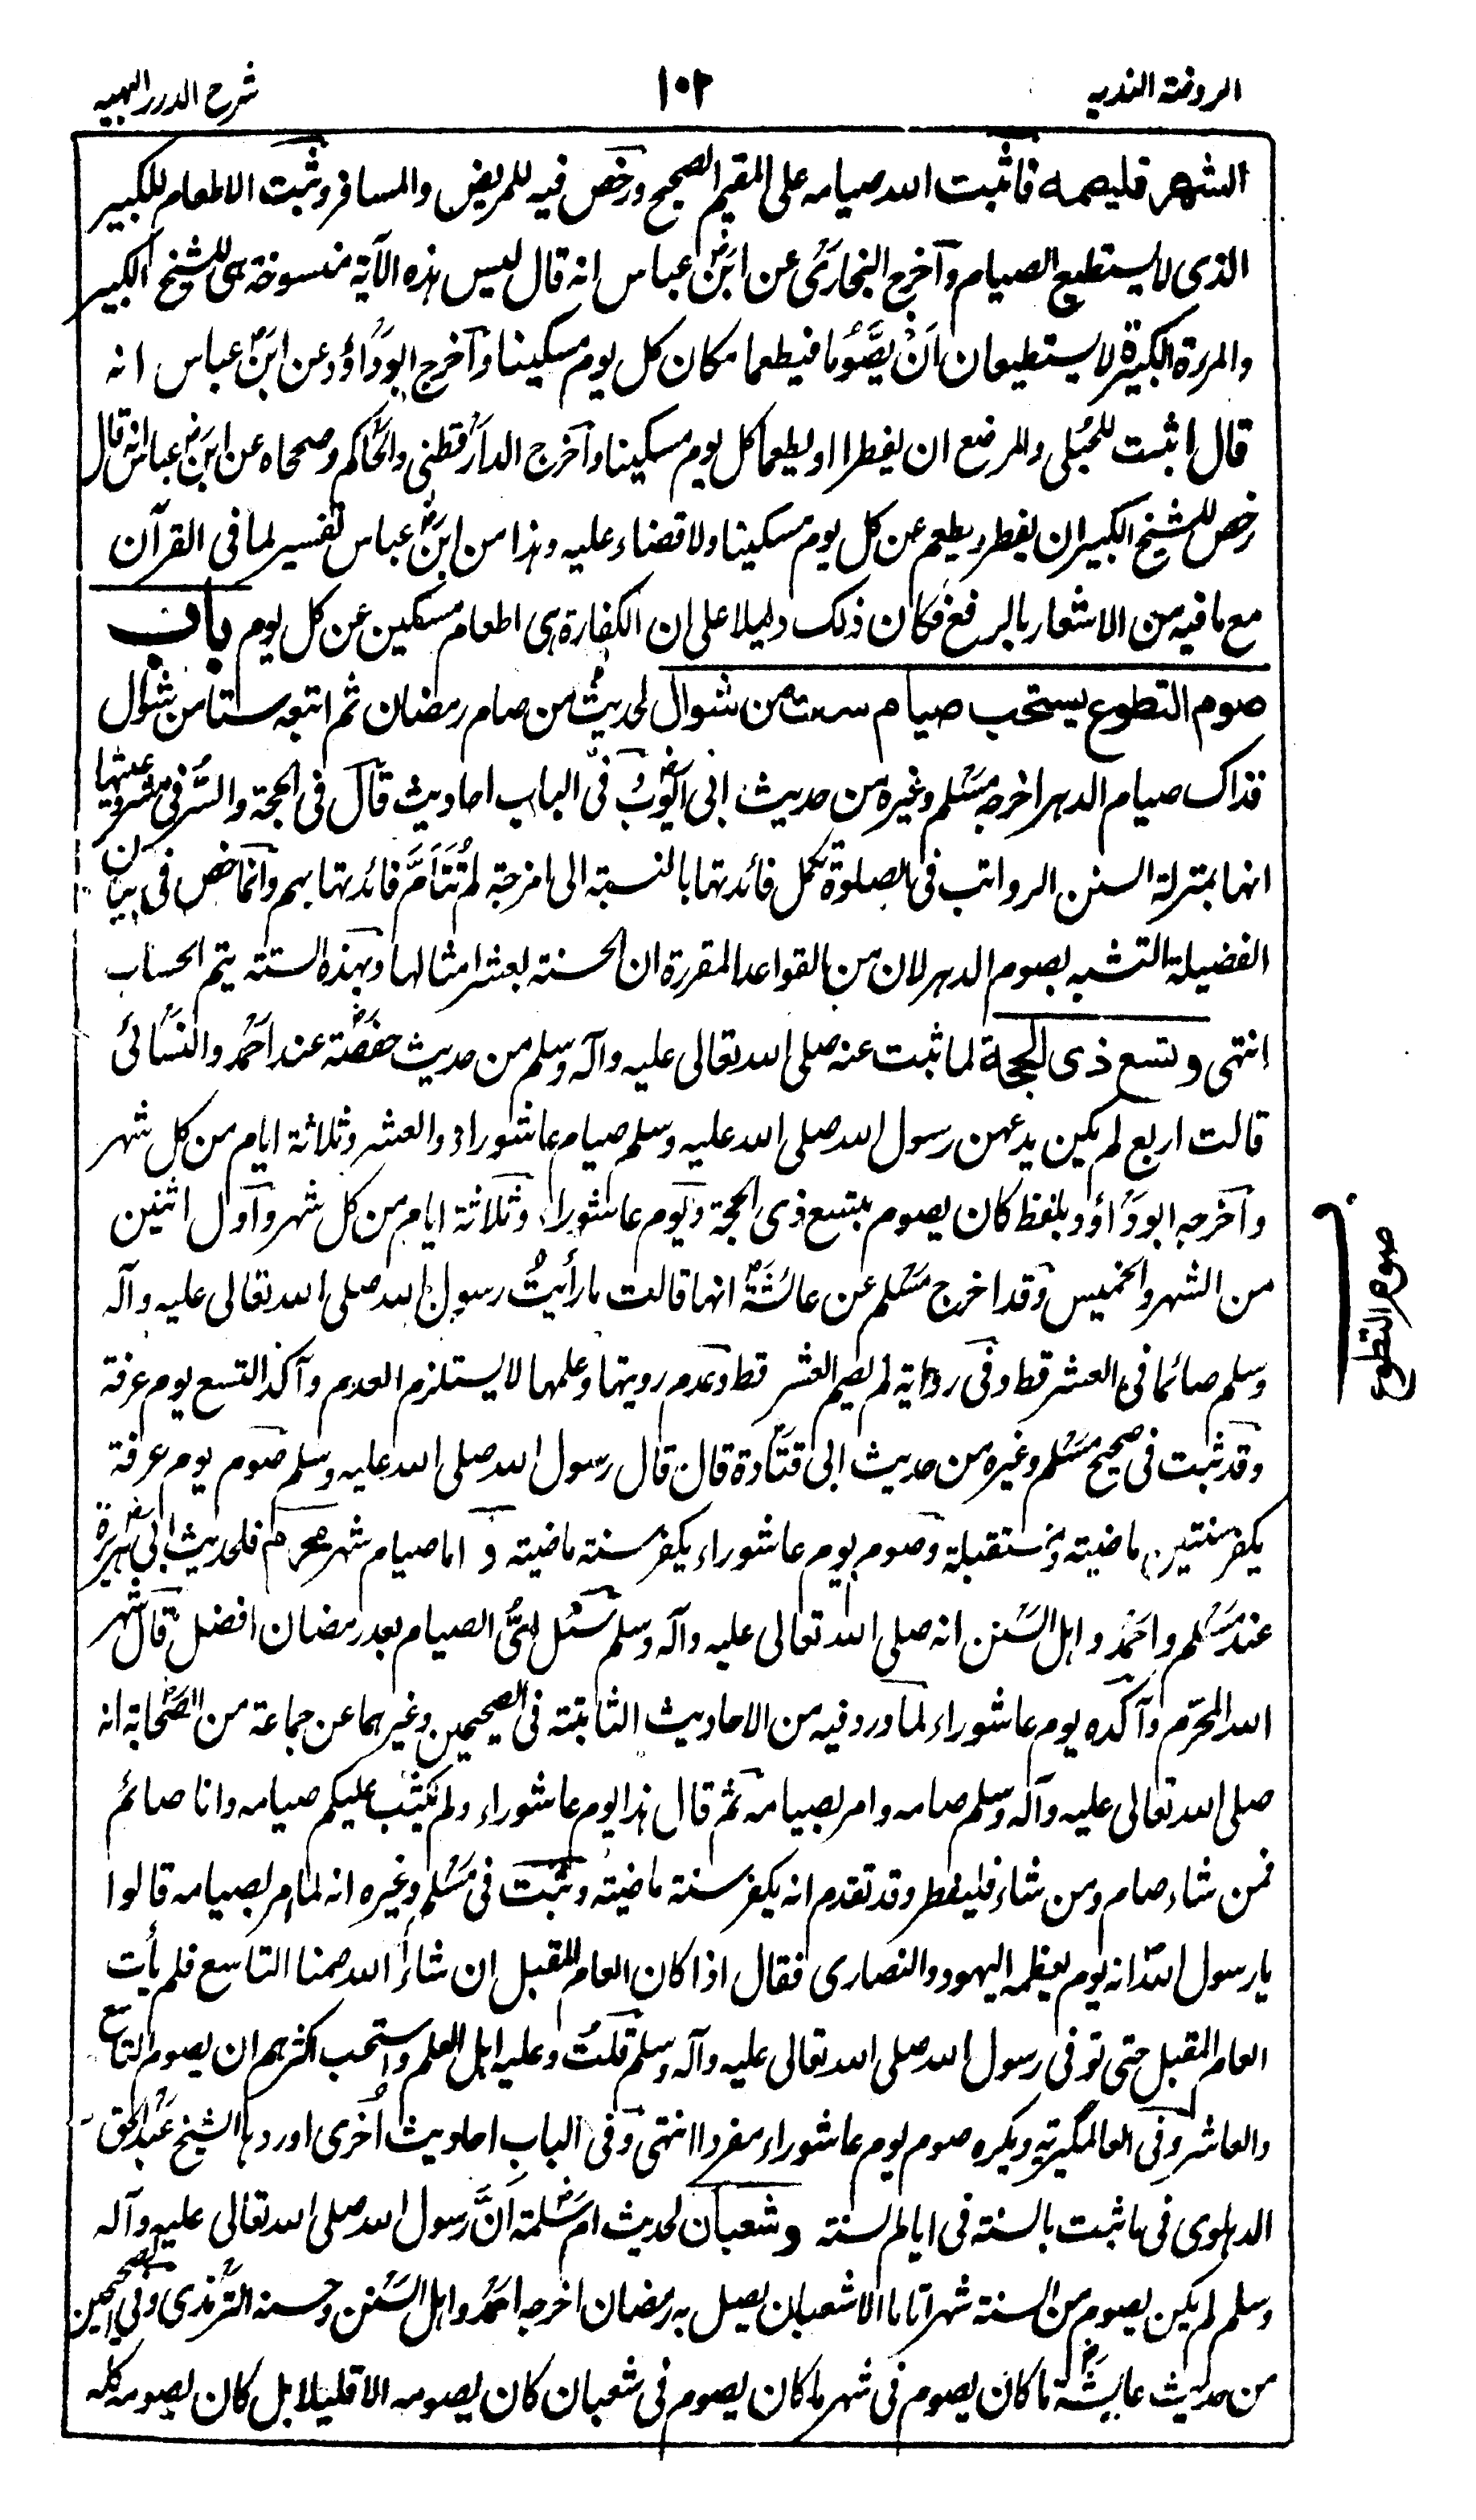 الروضة الندية
١٠٢
شرح الدرر البهية
الشهر فليصمه فاثبت الله صيامه على المقيم الصحيح ورخص فيه للمريض والمسافر وثبت الاطعام للكبير
الذى لا يستطيع الصيام وآخرج البخارى عن ابن عباس انه قال ليس هذه الآية منسوخة هى للشيخ الكبير
والمرءة الكبيرة لا يستطيعان ان يصوما فيطعما مكان كل يوم مسكينا وآخرج ابو داؤد عن ابن عباس انه
قال اثبت للحبلى والمرضع ان يفطرا او يطعما كل يوم مسكينا وآخرج الدارقطنى والحاكم وصححاه عن ابن عباس انه قال
رخص للشيخ الكبير ان يفطر ويطعم عن كل يوم مسكينا ولا قضاء عليه وهذا من ابن عباس تفسير لما فى القرآن
مع ما فيه من الاشعار بالرفع فكان ذلك دليلا على ان الكفارة هى اطعام مسكين عن كل يوم باب
صوم التطوع يستحب صيام ست من شوال لحديث من صام رمضان ثم اتبعه ستا من شوال
فذاك صيام الدهر اخرجه مسلم وغيره من حديث ابى ايوب وفى الباب احاديث قال فى الحجة والسر فى مشروعيتها
انها بمنزلة السنن الرواتب فى الصلوة تكمل فائدتها بالنسبة الى امزجة لم تتأم فائدتها بهم وانما خص فى بيان
الفضيلة التشبه بصوم الدهر لان من القواعد المقررة ان الحسنة بعشر امثالها وبهذه الستة يتم الحساب
انتهى وتسع ذى الحجة لما ثبت عنه صلى الله تعالى عليه وآله وسلم من حديث حفصة عند احمد والنسائى
قالت اربع لم يكن يدعهن رسول الله صلى الله عليه وسلم صيام عاشوراء والعشر وثلاثة ايام من كل شهر
وآخرجه ابو داؤد بلفظ كان يصوم تسع ذى الحجة ويوم عاشوراء وثلاثة ايام من كل شهر وآول اثنين
من الشهر والخميس وقد اخرج مسلم عن عائشة انها قالت ما رأيت رسول الله صلى الله تعالى عليه وآله
وسلم صائما فى العشر قط وفى رواية لم يصم العشر قط وعدم رويتها وعلمها لا يستلزم العدم وآكد التسع يوم عرفة
وقد ثبت فى صحيح مسلم وغيره من حديث ابى قتادة قال قال رسول الله صلى الله عليه وسلم صوم يوم عرفة
يكفر سنتين ماضية ومستقبلة وصوم يوم عاشوراء يكفر سنة ماضية و اما صيام شهر محرم فلحديث ابى هريرة
عند مسلم واحمد واهل السنن انه صلى الله تعالى عليه وآله وسلم سئل اى الصيام بعد رمضان افضل قال شهر
الله المحرم وآكده يوم عاشوراء لما ورد فيه من الاحاديث الثابتة فى الصحيحين وغيرهما عن جماعة من الصحابة انه
صلى الله تعالى عليه وآله وسلم صامه وامر بصيامه ثم قال هذا يوم عاشوراء ولم يكتب عليكم صيامه وانا صائم
فمن شاء صام ومن شاء فليفطر وقد تقدم انه يكفر سنة ماضية وثبت فى مسلم وغيره انه لما امر بصيامه قالوا
يا رسول الله انه يوم يعظمه اليهود والنصارى فقال اذا كان العام المقبل ان شاء الله صمنا التاسع فلم يأت
العام المقبل حتى توفى رسول الله صلى الله تعالى عليه وآله وسلم قلت وعليه اهل العلم واستحب اكثرهم ان يصوم التاسع
والعاشر وفى العالمگيرية ويكره صوم يوم عاشوراء مفردا انتهى وفى الباب احاديث اخرى اوردها الشيخ عبد الحق
الدهلوى فى ما ثبت بالسنة فى ايام السنة وشعبان لحديث ام سلمة ان رسول الله صلى الله تعالى عليه وآله
وسلم لم يكن يصوم من السنة شهرا تاما الا شعبان يصل به رمضان اخرجه احمد واهل السنن وحسنه الترمذى وفى الصحيحين
من حديث عائشة ما كان يصوم فى شهر ما كان يصوم فى شعبان كان يصومه الا قليلا بل كان يصومه كله
صوم التطوع